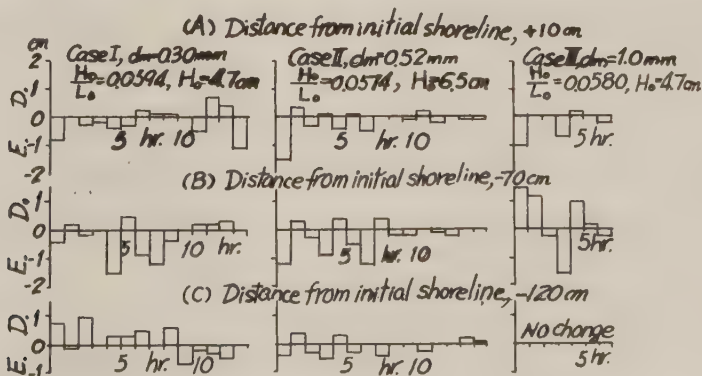 (A) Distance from initial shoreline, +10cm
cm
Case I, dm=0.30mm
H₀/L₀=0.0594, H₀=4.7cm
Case II, dm=0.52mm
H₀/L₀=0.0574, H₀=6.5cm
Case III, dm=1.0mm
H₀/L₀=0.0580, H₀=4.7cm
2
1
0
-1
-2
D.
E.
5 hr. 10
5 hr. 10
5 hr.
(B) Distance from initial shoreline, -70cm
1
0
-1
-2
D.
E.
5 10 hr.
5 hr. 10
5 hr.
(C) Distance from initial shoreline, -120cm
1
0
-1
D.
E.
5 hr. 10
5 hr. 10
No change
5 hr.